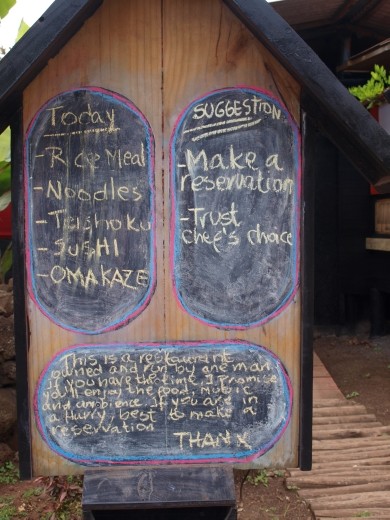 Today
- Rice Meal
- Noodles
- Teishoku
- SUSHI
- OMAKAZE
SUGGESTION
- Make a
reservation
- Trust
chef's choice
This is a restaurant
owned and run by one man.
If you have the time, I promise
you'll enjoy the food, music
and ambience. If you are in
a hurry, best to make a
reservation
THANX